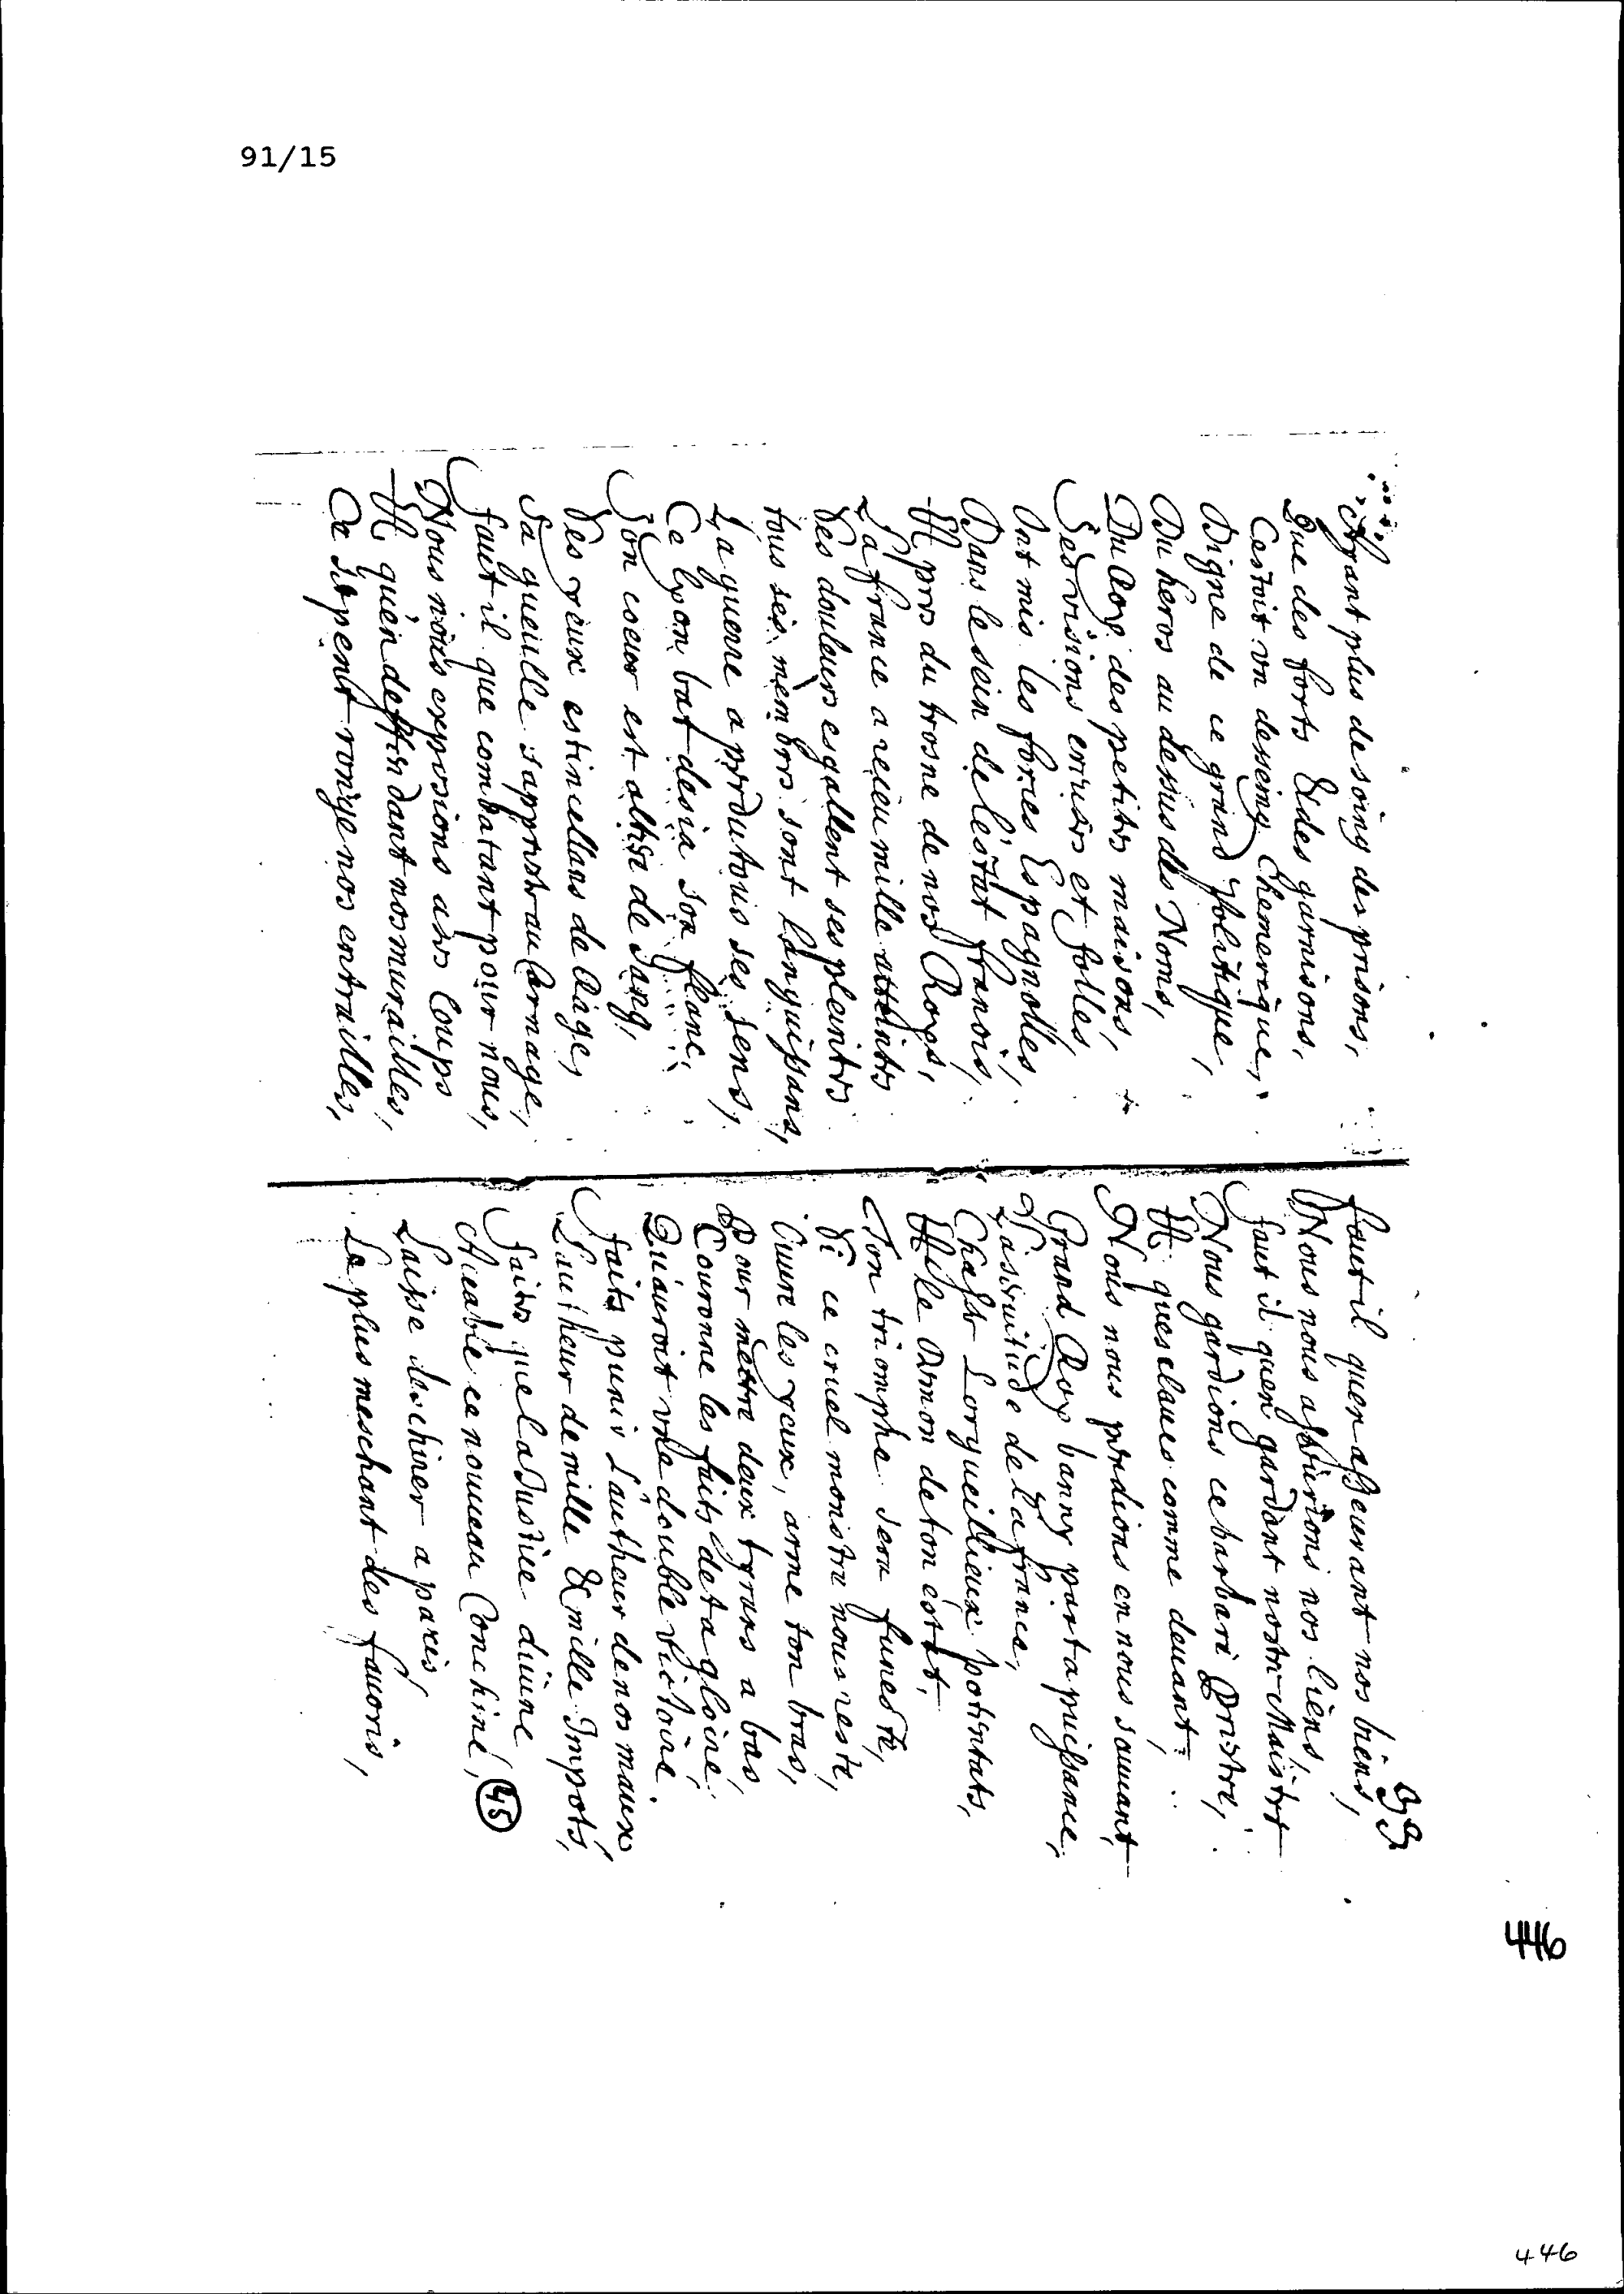 91/15
Ayant plus de soing des prisons,
Que des forts & des garnisons,
Cestoit vn desseing Chemerique,
Digne de ce grand Politique,
Du heros au dessus des Noms,
Du Roy des petites maisons,
Ses visions creuses et folles,
Ont mis les forces Espagnolles,
Dans le sein de lestat franois,
Et pres du trosne de nos Roys,
La france a receu mille atteintes
Ses douleurs esgallent ses pleintes
tous ses membres sont languissans,
La guerre a perdu tous ses sens,
Ce Lyon bat desia son flanc,
Son coeur est alteré de sang,
Ses yeux estincellans de Rage,
Sa gueulle sappreste au Carnage,
faut il que combatant pour nous,
Nous nous exposions aux Coups
Et qu'en deffendant nos murailles,
Ce serpent ronge nos entrailles,
99
faut il quen asseurant nos biens,
Nous nous asseurions nos liens,
faut il quen gardant nostre Maistre
Nous gardions ce barbare Prestre,
Et quesclaues comme deuant,
Nous nous perdions en nous sauuant
Grand Roy banny par ta puissance,
La seruitude de la france,
Chasse Lorgueillieux potentat,
Et le Demon de ton estat,
Ton triomphe sera funeste,
Si ce cruel monstre nous reste,
Ouure les yeux, arme ton bras,
Pour mettre deux tyrans a bas
Couronne les faits de ta gloire,
Qui auroit vne double victoire
faits punir Lautheur de nos maux
Lautheur de mille & mille Impots,
faites que la Justice diuine
Accable ce nouueau Conchine,
45
Laisse deschirer a paris,
Le plus meschant des fauoris,
446
446